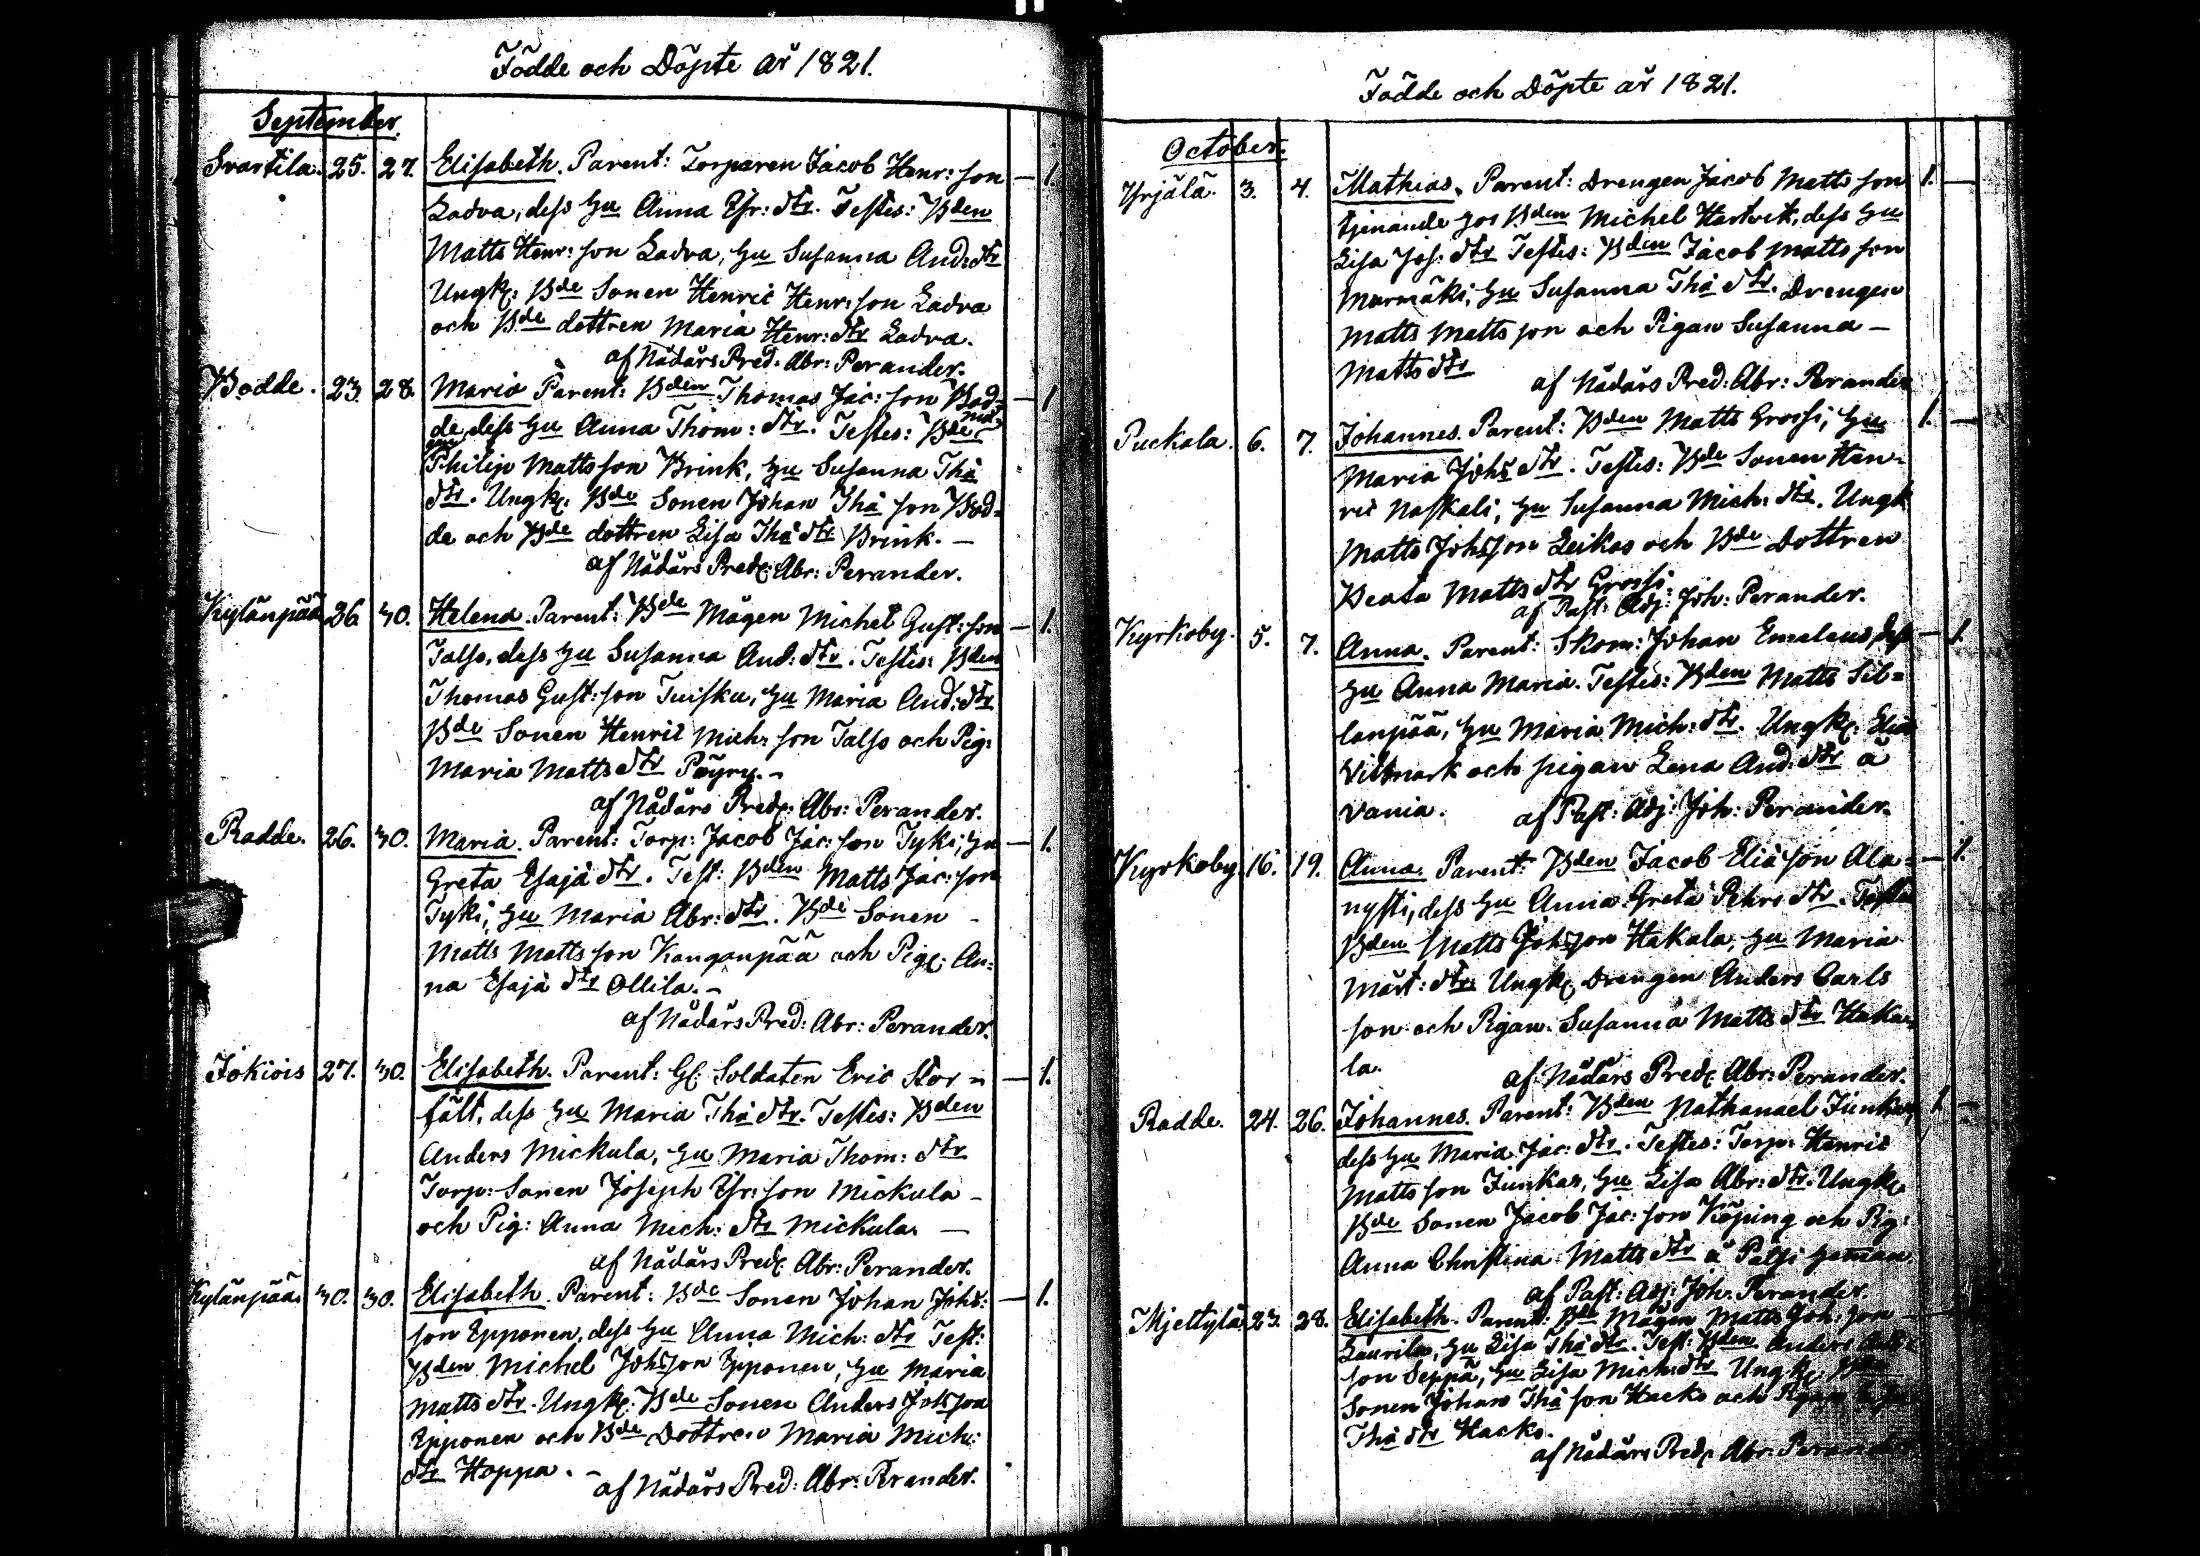 Födde och Döpte år 1821.
September.
Svartila. 25. 27. Elisabeth. Parent: Torparen Jacob Henr: son — 1.
Ladva, dess Hu Anna Efr: dtr. Testes: Bden
Matts Henr: son Ladva, Hu Susanna And: dtr
Ungk: Bde Sonen Henric Henr: son Ladva
och Bde dottren Maria Henr: dtr Ladva.
af Nådårs Pred: Abr: Perander.
Bodde. 23. 28. Maria Parent: Bden Thomas Jac: son Bod= — 1
de, dess Hu Anna Thom: dtr. Testes: Bde
Philip Matts son Brink, Hu Susanna Thå
dtr. Ungk: Bde Sonen Johan Thå son Bod=
de och Bde dottren Lisa Thå dtr Brink. —
af Nådårs Pred: Abr: Perander.
Kylänpää 26. 30. Helena. Parent: Bde Mågen Michel Gust: son — 1.
Talso, dess Hu Susanna And: dtr. Testes: Bden
Thomas Gust: son Tuisku, Hu Maria And: dtr
Bde Sonen Henric Mich: son Talso och Pig:
Maria Matts dtr Pöyry. —
af Nådårs Pred: Abr: Perander.
Radde. 26. 30. Maria. Parent: Torp: Jacob Jac: son Tyki, Hu — 1.
Greta Esajæ dtr. Test: Bden Matts Jac: son
Tyki, Hu Maria Abr: dtr. Bde Sonen —
Matts Matts son Kanganpää och Pig: An=
na Esajæ dtr Ollila. —
af Nådårs Pred: Abr: Perander.
Jokiois 27. 30. Elisabeth. Parent: Gl: Soldaten Eric Stor= — 1.
fält, dess Hu Maria Thå dtr. Testes: Bden
Anders Mickula, Hu Maria Thom: dtr
Torp: Sonen Joseph Efr: son Mickula —
och Pig: Anna Mich: dtr Mickula. —
af Nådårs Pred: Abr: Perander.
Kylänpää. 30. 30. Elisabeth. Parent: Bde Sonen Johan Johs: — 1.
son Epponen, dess Hu Anna Mich: dtr Test:
Bden Michel Johs son Epponen, Hu Maria
Matts dtr. Ungk: Bde Sonen Anders Johs son
Epponen och Bde Dottren Maria Mich:
dtr Hoppa. —
af Nådårs Pred: Abr: Perander.
Födde och Döpte år 1821.
October.
Yrjälä. 3. 4. Mathias. Parent: Drengen Jacob Matts son 1. —
tjenande hos Bden Michel Hartvik, dess Hu
Lisa Jos: dtr Testes: Bden Jacob Matts son
Murmäki, Hu Susanna Thå dtr. Drengen
Matts Matts son och Pigan Susanna —
Matts dtr
af Nådårs Pred: Abr: Perander
Puckala. 6. 7. Johannes. Parent: Bden Matts Grossi, Hu 1. —
Maria Johs dtr. Testes: Bde Sonen Hen=
ric Naskali, Hu Susanna Mich: dtr. Ungk
Matts Johs son Leikas och Bde Dottren
Beata Matts dtr Grossi.
af Past: Adj: Joh: Perander.
Kyrkoby. 5. 7. Anna. Parent: Skom: Johan Emeleus, dess — 1.
Hu Anna Maria. Testes: Bden Matts Sil=
lanpää, Hu Maria Mich: dtr. Ungk:
Vittmark och pigan Lena And: dtr å
Vania.
af Past: Adj: Joh: Perander.
Kyrkoby 16. 19. Anna. Parent: Bden Jacob Eliæ son Ala= — 1.
nysti, dess Hu Anna Greta Pehrs dtr. Testes
Bden Matts Johs son Hakala, Hu Maria
Mårt: dtr. Ungk: Drengen Anders Carls
son och Pigan Susanna Matts dtr Haka=
la.
af Nådårs Pred: Abr: Perander.
Radde. 24. 26. Johannes. Parent: Bden Nathanael Junkar, 1 —
dess Hu Maria Jac: dtr. Testes: Torp: Henric
Matts son Junkar, Hu Lisa Abr: dtr. Ungk:
Bde Sonen Jacob Jac: son Köping och Pig:
Anna Christina Matts dtr å Palsi heman.
af Past: Adj: Joh: Perander.
Mjettylä 23. 28. Elisabeth. Parent: Bde Mågen Matts Joh: son —
Laurila, Hu Lisa Thå dtr. Test: Bden Anders
son Seppä, Hu Lisa Mich: dtr Ungk: Bde
Sonen Johan Thå son Hacko och Pigan
Thå dtr Hacko.
af Nådårs Pred: Abr: Perander